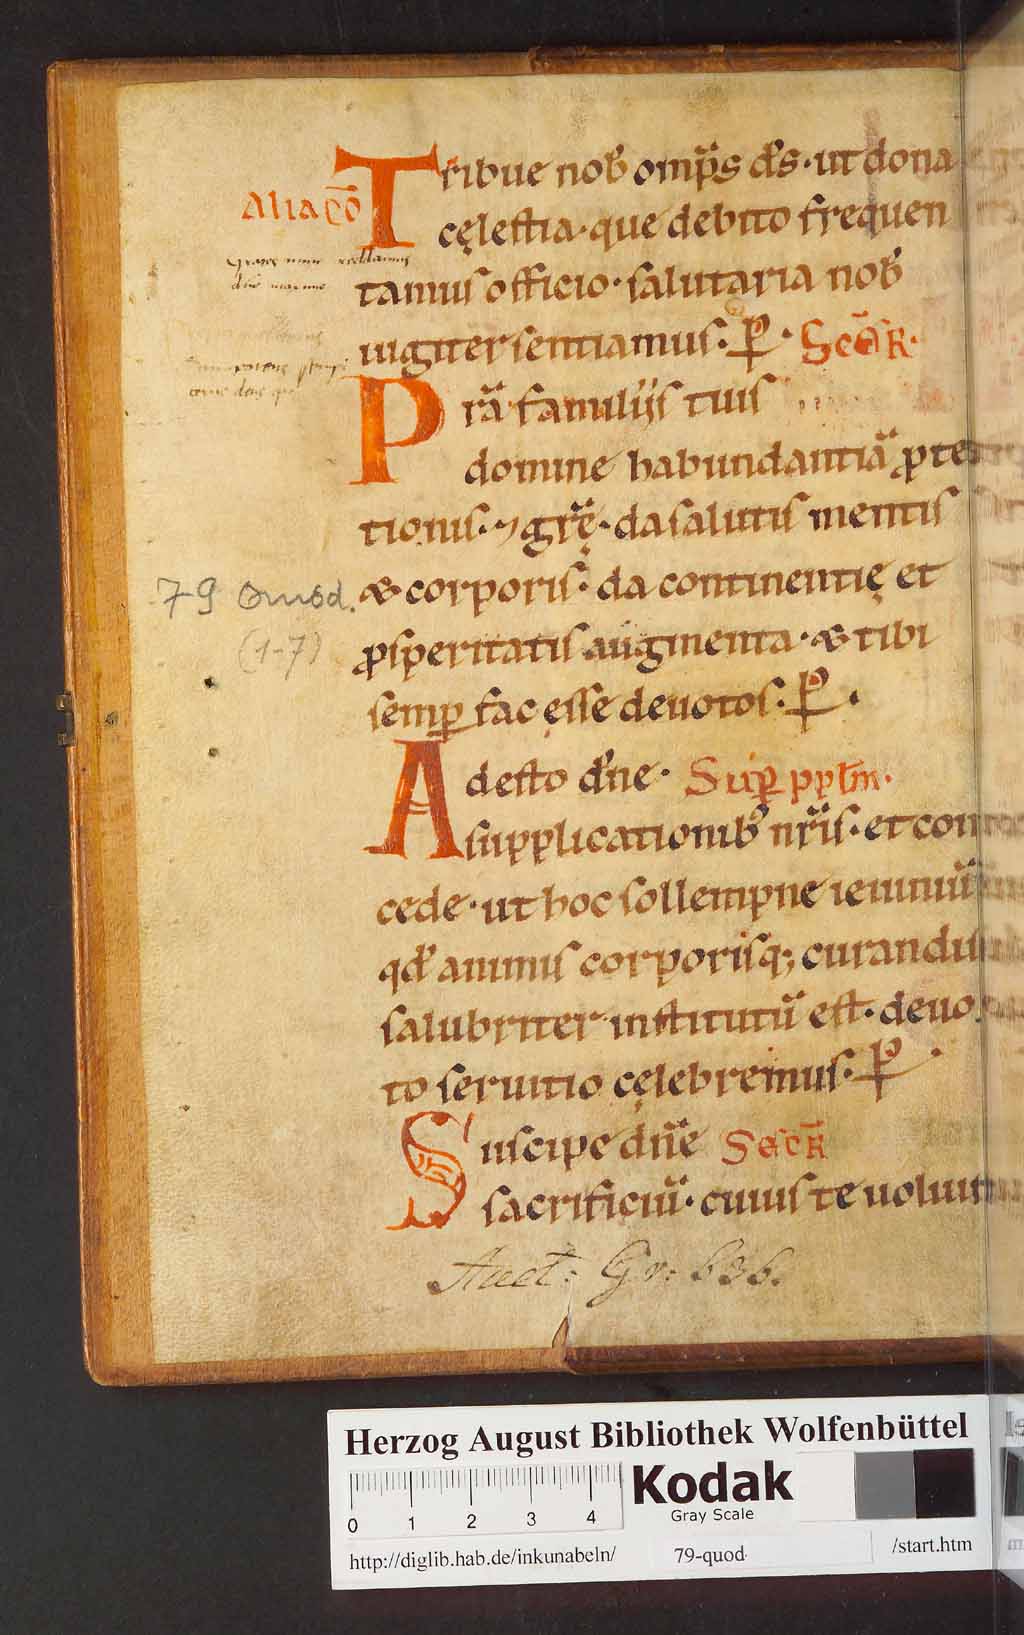 Tribue nob̄ omp̄s d̄s· ut dona
Alia cō
cęlestia· que debito frequen
tamus officio· salutaria nob̄
iugiter sentiamus· P̄· Secr̄·
Prā famuliis tuis
domine habundantiā ꝓtec
tionis· ⁊ gr̄ę· da salutis mentis
& corporis· da continentię et
ꝓsperitatis augmenta· & tibi
semꝑ fac esse deuotos· P̄·
Adesto dn̄e· Suꝑ pplm̄·
supplicationib; nr̄is· et con
cede· ut hoc sollempne ieiuniū
qd̄ animis corporisq; curandis
salubriter institutū est· deuo
to seruitio cęlebremus· P̄·
Suscipe dn̄e Secr̄
sacrificiū· cuius te uoluis
79 Quod.
(1-7)
Auct: Gr: 636.
Herzog August Bibliothek Wolfenbüttel
0 1 2 3 4
Kodak
Gray Scale
http://diglib.hab.de/inkunabeln/ 79-quod /start.htm